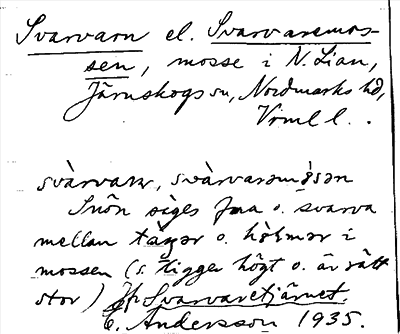 Svarvarn el. Svarvaremos-
sen, mosse i N. Lian,
Järnskogs sn, Nordmarks hd,
Vrml l.
svàrvaɳ, svàrvarəmɷ̀sən
Snön säges fara o. svarva
mellan o. i
mossen (s. ligger högt o. är rätt
stor) Jfr Svarvaretjärnet.
E. Andersson 1935.